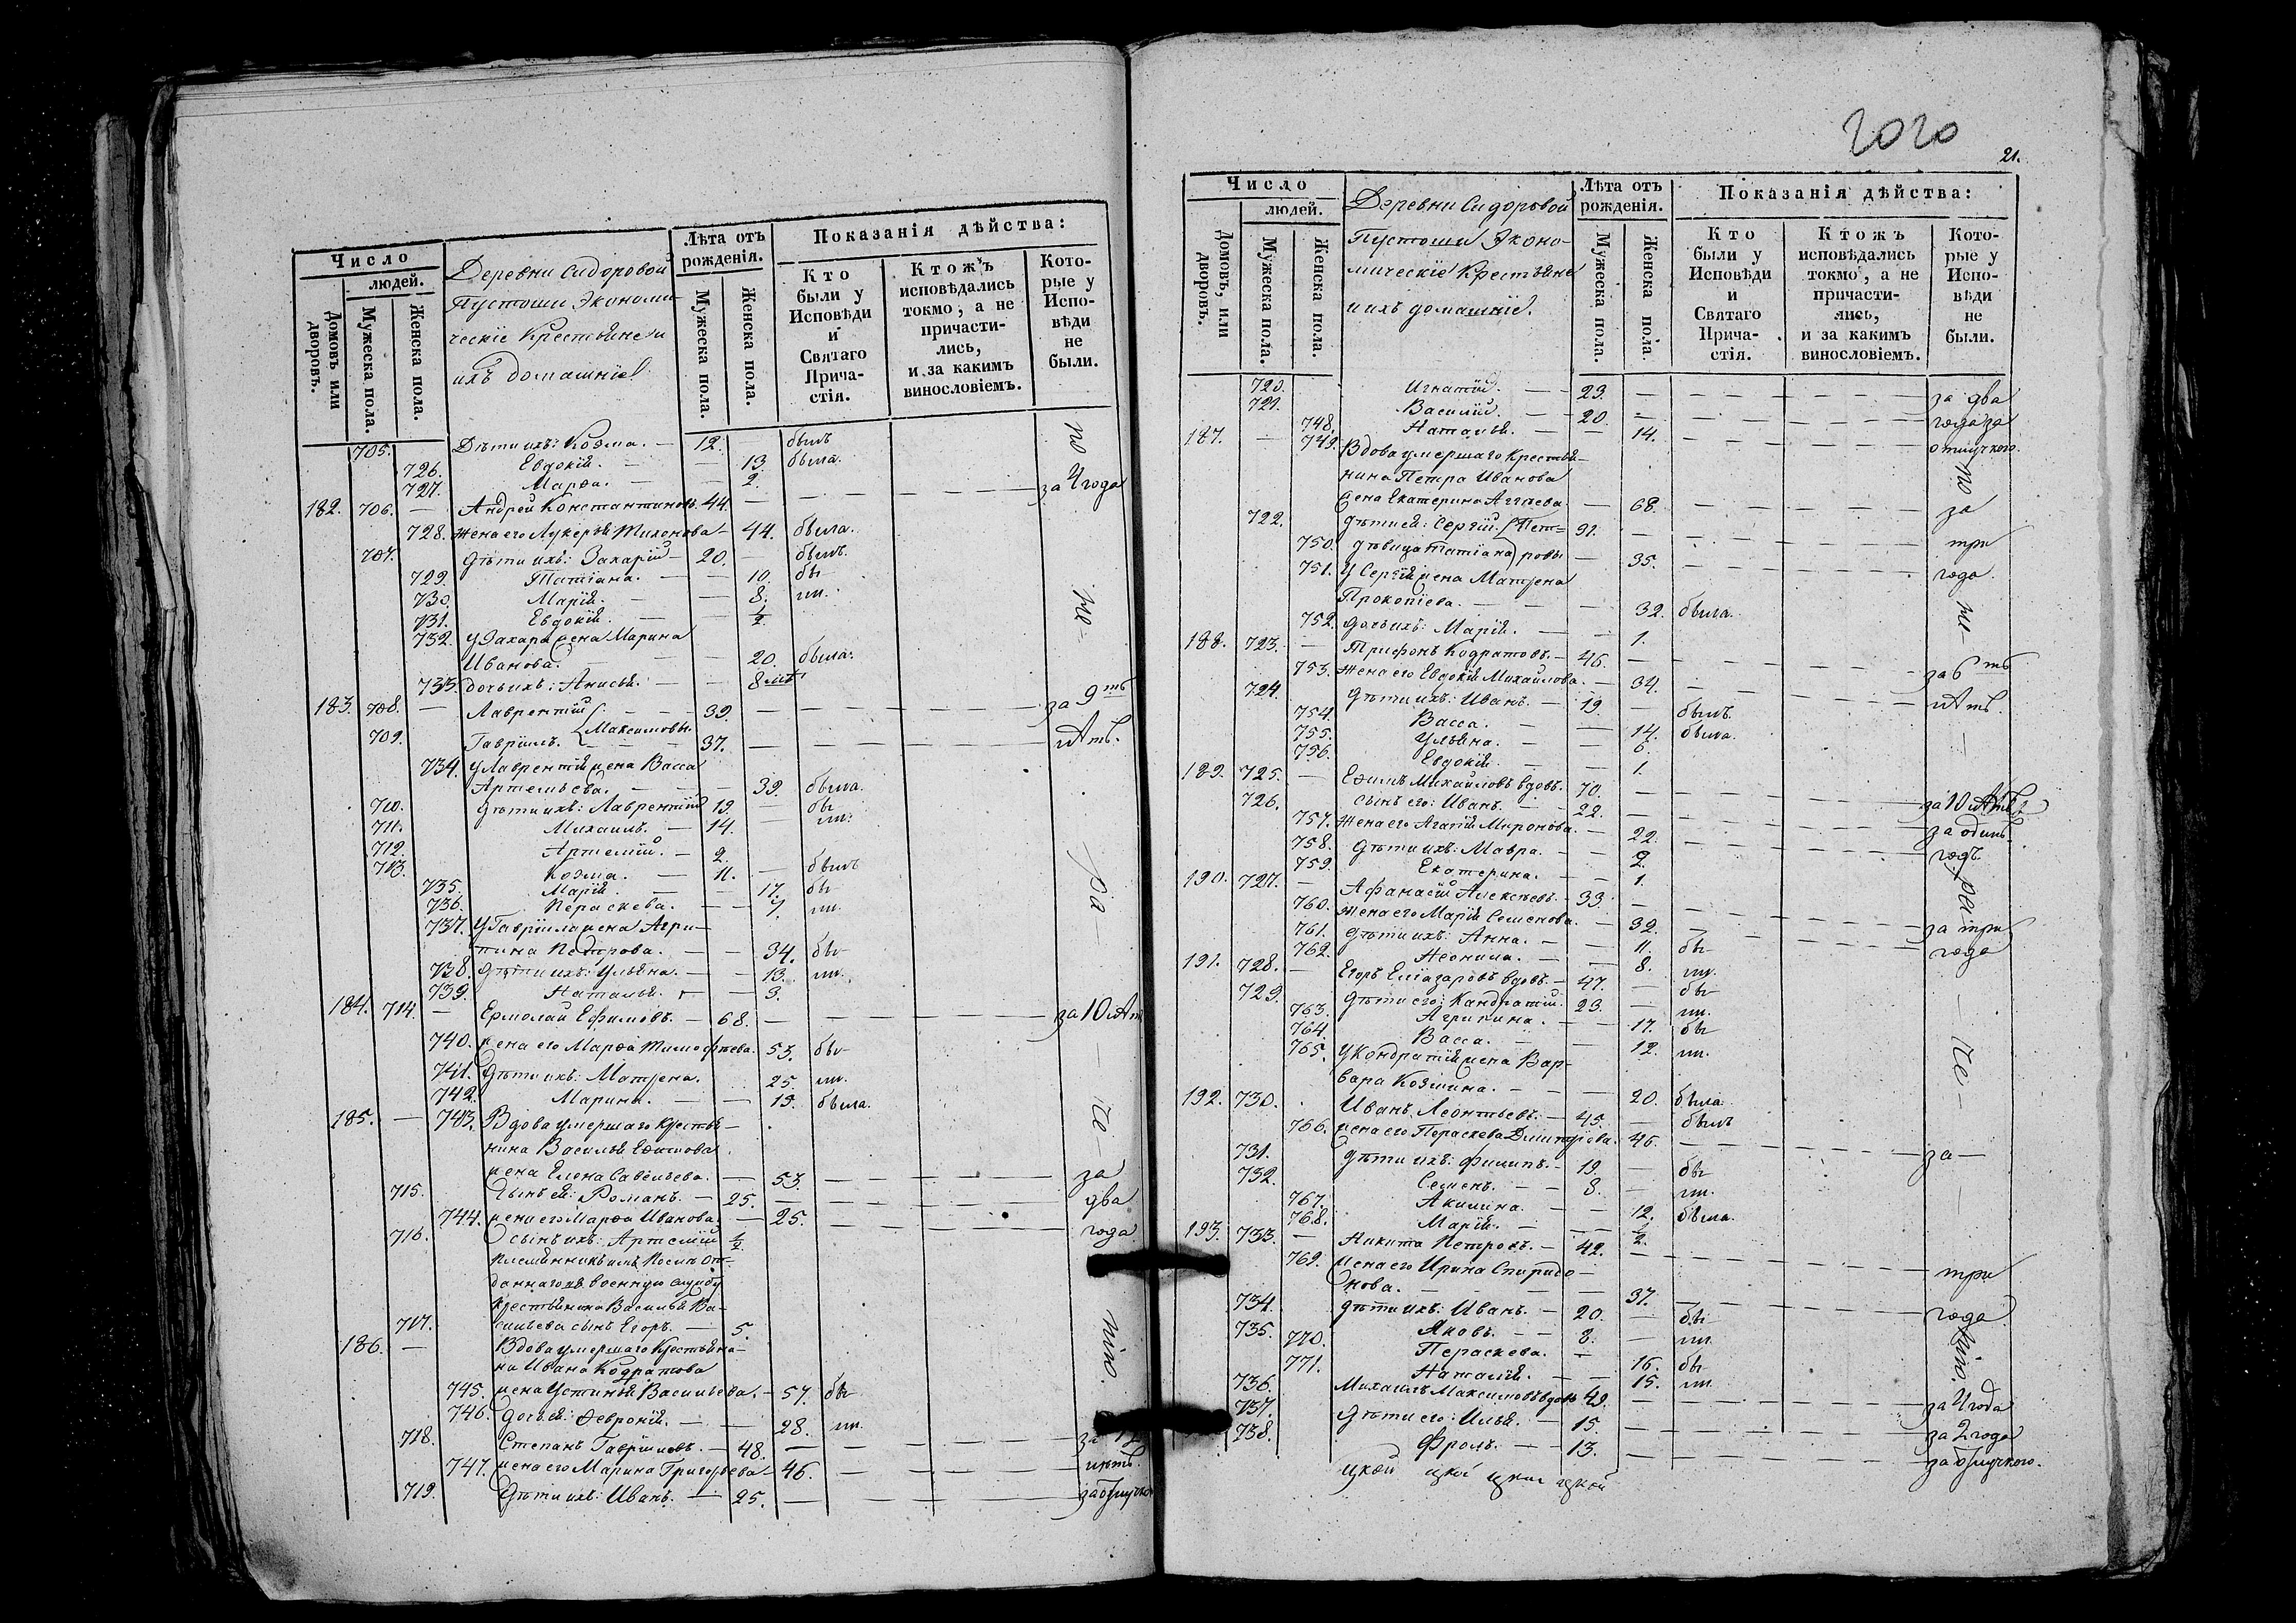 Число
людей.
Домовъ или дворовъ.
Мужеска пола.
Женска пола.
Деревни Сидоровой
Пустоши Экономи-
ческіе Крестьяне и
ихъ домашніе
Лѣта отъ рожденія.
Мужеска пола.
Женска пола.
Показанія дѣйства:
Кто были у Исповѣди и Святаго Прича-стія.
Ктожъ исповѣдались токмо, а не причасти-лись, и за какимъ винословіемъ.
Кото-рые у Испо-вѣди не были.
705. Дѣти ихъ: Козма. — 12. былъ
726. Евдокія. — — 13. была.
727. Марѳа. — — 2.
182. 706. — Андрей Константиновъ 44. — за 4 года
728. жена его Лукерья Тихонова — 44. была.
707. дѣти ихъ: Захарій — 20. — былъ
729. Татіана. — — 10. бы
730. Марія. — — 8. ли.
731. Евдокія. — — 1/2
732. у Захара жена Марина
Иванова. — — 20. была.
733. дочь ихъ: Анисья. — — 8 м.
183. 708. — Лаврентій — 39. — за 9ть
Максимовы
709. Гавріилъ. — 37. — лѣтъ.
734. у Лаврентія жена Васса
Артемьева. — — 39. была.
710. дѣти ихъ: Лаврентій 19. — бы
711. Михаилъ. — 14. — ли.
712. Артемій. — 2.
713. Козма. — 11. — былъ
735. Марія. — — 17. бы
736. Пераскева. — — 7. ли.
737. у Гавріила жена Агри-
пина Петрова. — — 34. бы
738. дѣти ихъ: Ульяна. — — 13. ли.
739. Наталья. — — 3.
184. 714. — Ермолай Ефимовъ. — 68. — за 10 лѣт
740. жена его Марѳа Тимофѣева. 53. бы
741. дѣти ихъ: Матрена. 25. ли.
742. Марина. — — 19. была.
185. — 743. Вдова умершаго крестья-
нина Василья Ефимова
жена Елена Савельева. — 53. — за
715. сынъ ей: Романъ. — 25. — два
744. жена его Марѳа Иванова. — 25. — года
716. сынъ ихъ: Артемій 1/2
племянникъ имъ после от-
даннаго въ военную службу
крестьянина Василья Ва-
717. сильева сынъ Егоръ. — 5.
186. — Вдова умершаго крестьяни-
на Ивана Кодратова
745. жена Устинья Васильева. — 57. бы
746. дочь ей: Февронія. — — 28. ли
718. Степанъ Гавріиловъ. — 48. —
747. жена его Марина Григорьева — 46. — лѣтъ.
719. дѣти ихъ: Иванъ. — 25. — за отлучко
2020
21.
Число
людей.
Домовъ, или дворовъ.
Мужеска пола.
Женска пола.
Деревни Сидоровой
Пустоши Эконо-
мическіе Крестьяне
и ихъ домашніе.
Лѣта отъ рожденія.
Мужеска пола.
Женска пола.
Показанія дѣйства:
Кто были у Исповѣди и Святаго Прича-стія.
Ктожъ исповѣдались токмо, а не причасти-лись, и за какимъ винословіемъ.
Кото-рые у Испо-вѣди не были.
720. Игнатій. — 23. — за два
721. Василій. — 20. — года за
748. Наталья. — — 14. — отлучкою.
187. — 749. Вдова умершаго крестья-
нина Петра Иванова
жена Екатерина Аггѣева. — 68. — за
722. дѣти ей: Сергій. Пет- 31. — три
750. дѣвица Татіана ровы — 35. — года.
751. у Сергія жена Матрена
Прокопіева. — — 32. была.
752. дочь ихъ: Марія. — — 1.
188. 723. — Трифонъ Кодратовъ. — 46. — за 6ть
753. жена его Евдокія Михайлова. — 34. — лѣтъ.
724. дѣти ихъ: Иванъ. — 19. — былъ.
754. Васса. — — 14. была.
755. Ульяна. — — 6.
756. Евдокія. — — 1.
189. 725. — Ефимъ Михайловъ вдовъ. 70. — за 10 лѣтъ
726. сынъ его: Иванъ. — 22. — за одинъ
757. жена его Агафія Миронова. — 22. — годъ.
758. дѣти ихъ: Мавра. — — 2.
759. Екатерина. — — 1.
190. 727. — Афанасій Алексѣевъ. — 33. — за три
760. жена его Марія Семенова. — 32. — года
761. дѣти ихъ: Анна. — — 11. бы
762. Леонила. — — 8. ли.
191. 728. — Егоръ Еліазаровъ вдовъ. — 47. — бы
729. дѣти его: Кандратій. 23. — ли.
763. Агрипина. — — 17. бы
764. Васса. — — 12. ли.
765. у Кондратія жена Вар-
вара Козмина. — — 20. была.
192. 730. Иванъ Леонтьевъ. — 45. — былъ
766. жена его Пераскева Дмитріева. 46. — за —
731. дѣти ихъ: Филипъ. — 19. — бы
732. Семенъ. — 8. — ли.
767. Акилина. — — 12. была.
768. Марія. — — 1/2.
193. 733. — Никита Петровъ. — 42. — три
769. жена его Ирина Спиридо-
нова. — 37. — года
734. дѣти ихъ: Иванъ. — 20. — бы
735. Яковъ. — 8. — ли
770. Пераскева. — 16. бы
771. Наталія. — — 15. ли
736. Михаилъ Максимовъ вдовъ 49. — за 4 года
737. дѣти его: Илья. — 15. — за 2 года
738. Фролъ. — 13. — за отлучкою.